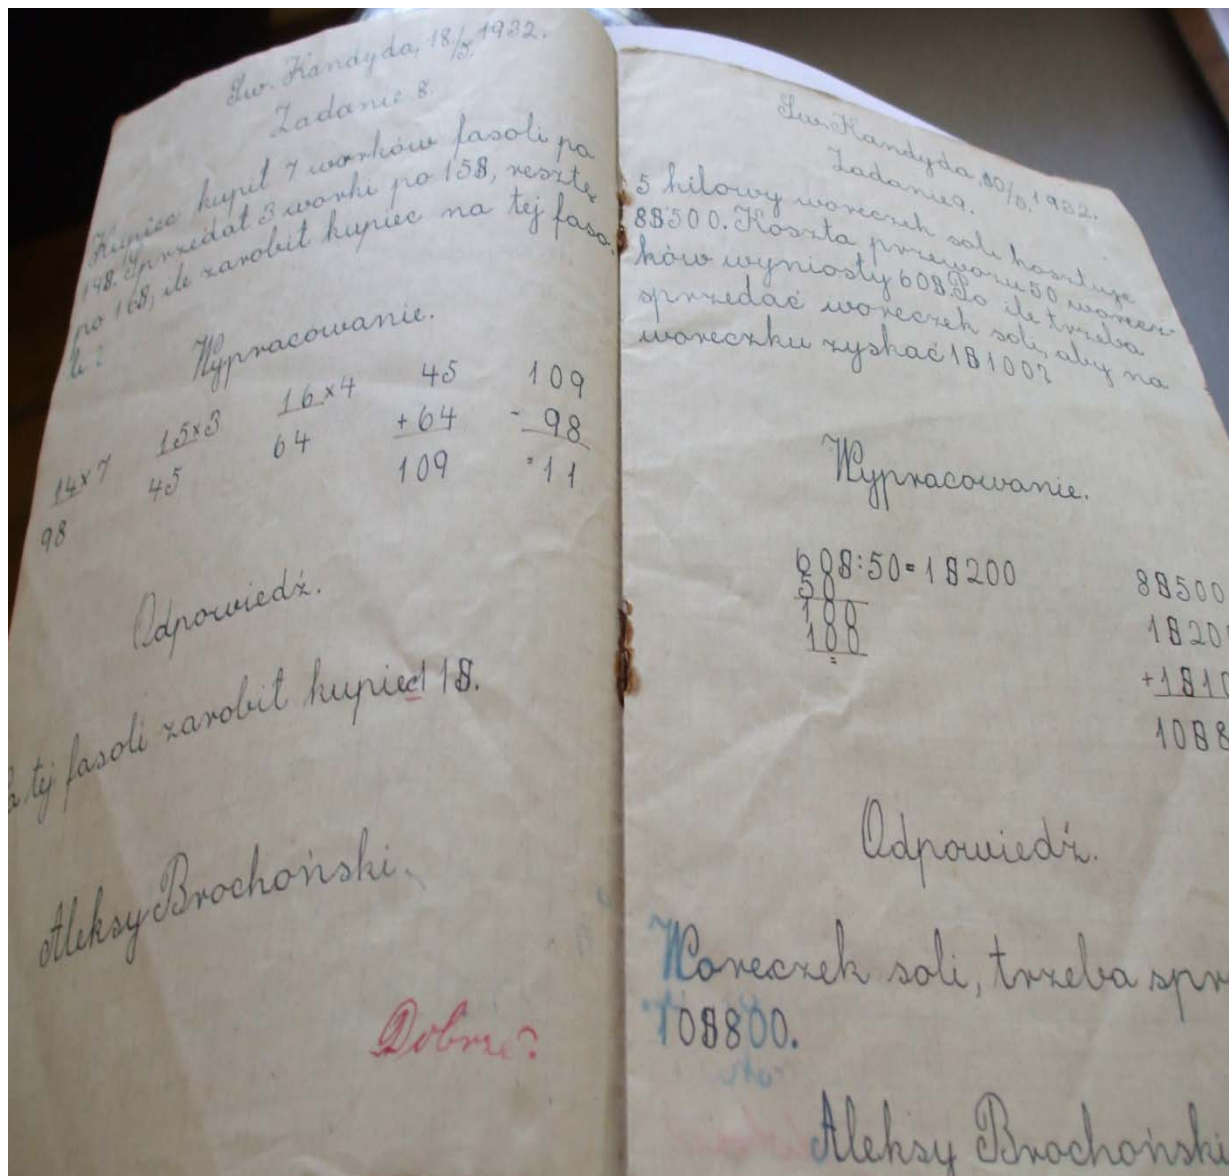 Św. Kandyda, 18/5. 1932.
Zadanie 8.
Kupiec kupił 7 worków fasoli po
14$. Sprzedał 3 worki po 15$, resztę
po 16$, ile zarobił kupiec na tej faso-
li?
Wypracowanie.
14x7 15x3 16x4 45 109
98 45 64 +64 - 98
109 11
Odpowiedź.
a tej fasoli zarobił kupiec 11$.
Aleksy Brochoński.
Dobrze.
Św. Kandyda, 20/5. 1932.
Zadanie 9.
5 kilowy woreczek soli kosztuje
8$500. Koszta przewozu 50 worecz-
ków wyniosły 60$. Po ile trzeba
sprzedać woreczek soli, aby na
woreczku zyskać 1$100?
Wypracowanie.
60$:50=1$200 8$500
50 1$20
100 +1$10
100 10$8
=
Odpowiedź.
Woreczek soli, trzeba spr
10$800.
Aleksy Brochoński